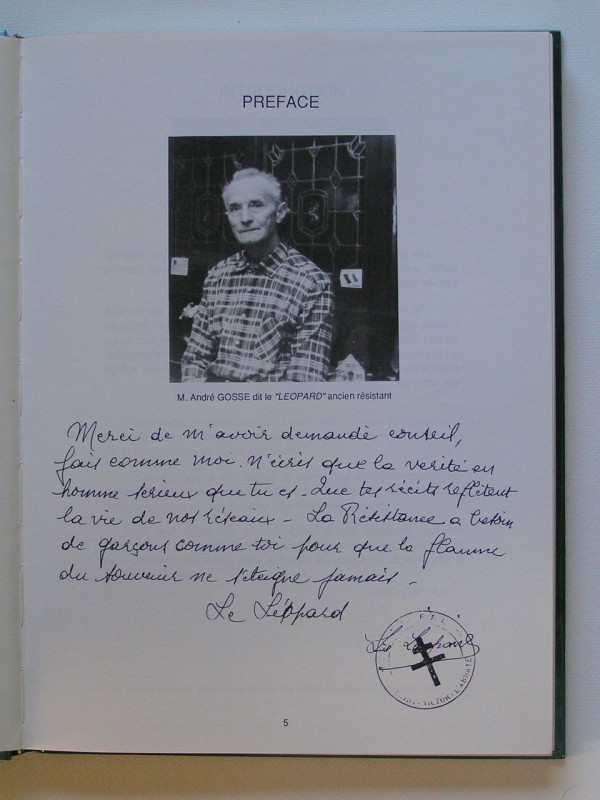 PREFACE
M. André GOSSE dit le "LEOPARD" ancien résistant
Merci de m'avoir demandé conseil,
fais comme moi. N'écris que la verité en
homme serieux que tu es. Que tes récits reflètent
la vie de nos réseaux - La Résistance a besoin
de garçons comme toi pour que la flamme
du souvenir ne s'éteigne jamais -
Le Léopard
VICTOR - L'ABBAYE
5